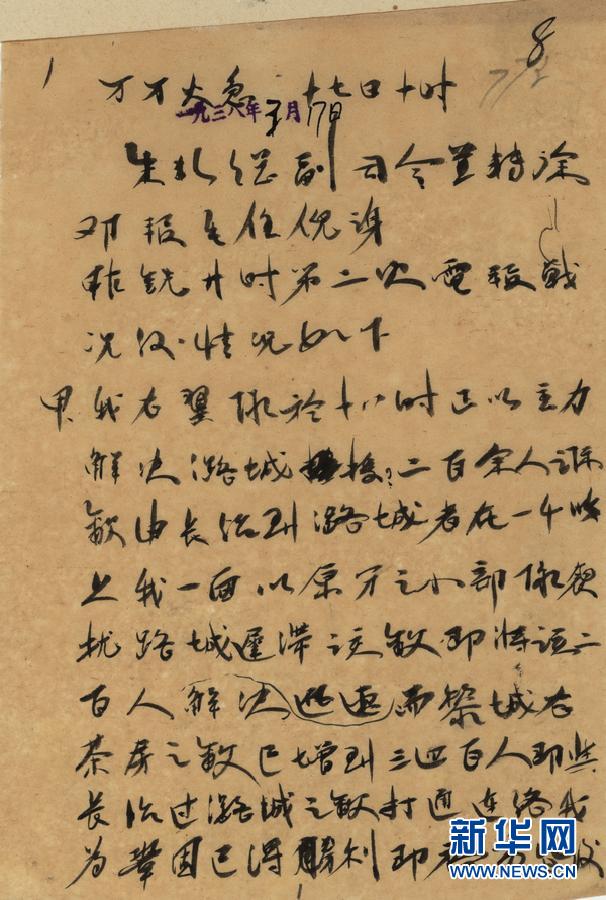 8
1
万万火急 十七日十时
一九三八年三月17日
朱彭总副司令并转徐
邓 主任倪
昨铣廿时第二次电报战
况后情况如下
甲、我右翼队于十八时正以主力
解决潞城 二百余人之际
敌由长治到潞城者在一千以
上我一面以原万之小部队
扰潞城迟滞该敌即将该二
百人解决 而黎城右
茶房之敌已增到三四百人即与
长治过潞城之敌打通连络我
为巩固已得胜利即
新华网
WWW.NEWS.CN